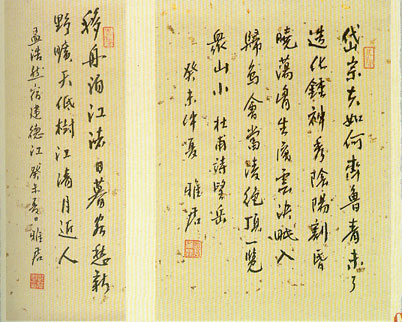 岱宗夫如何齊魯青未了
造化鍾神秀陰陽割昏
曉蕩胸生層雲決眥入
歸鳥會當凌絕頂一覽
眾山小 杜甫詩望岳
癸未仲夏 雅君
移舟泊江渚日暮客愁新
野曠天低樹江清月近人
孟浩然宿建德江 癸未夏日 雅君